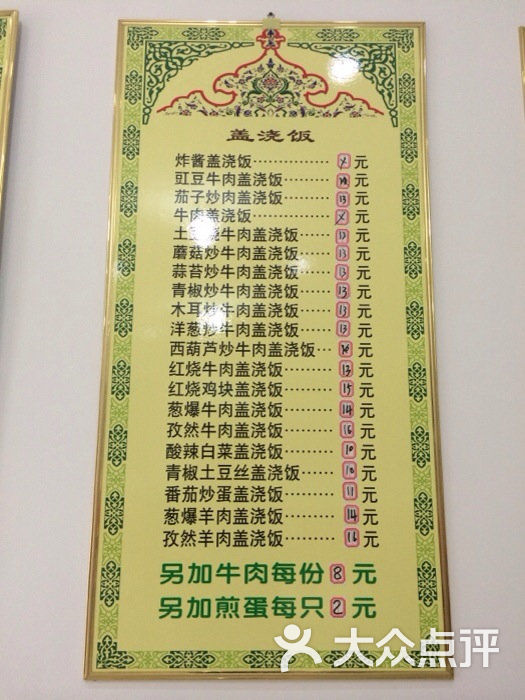 盖浇饭
炸酱盖浇饭……………元
豇豆牛肉盖浇饭………元
茄子炒肉盖浇饭………13元
牛肉盖浇饭……………元
土豆烧牛肉盖浇饭……13元
蘑菇炒牛肉盖浇饭……13元
蒜苔炒牛肉盖浇饭……13元
青椒炒牛肉盖浇饭……13元
木耳炒牛肉盖浇饭……13元
洋葱炒牛肉盖浇饭……13元
西葫芦炒牛肉盖浇饭…元
红烧牛肉盖浇饭………元
红烧鸡块盖浇饭………15元
葱爆牛肉盖浇饭………14元
孜然牛肉盖浇饭………16元
酸辣白菜盖浇饭………10元
青椒土豆丝盖浇饭……10元
番茄炒蛋盖浇饭………11元
葱爆羊肉盖浇饭………14元
孜然羊肉盖浇饭………16元
另加牛肉每份8元
另加煎蛋每只2元
大众点评